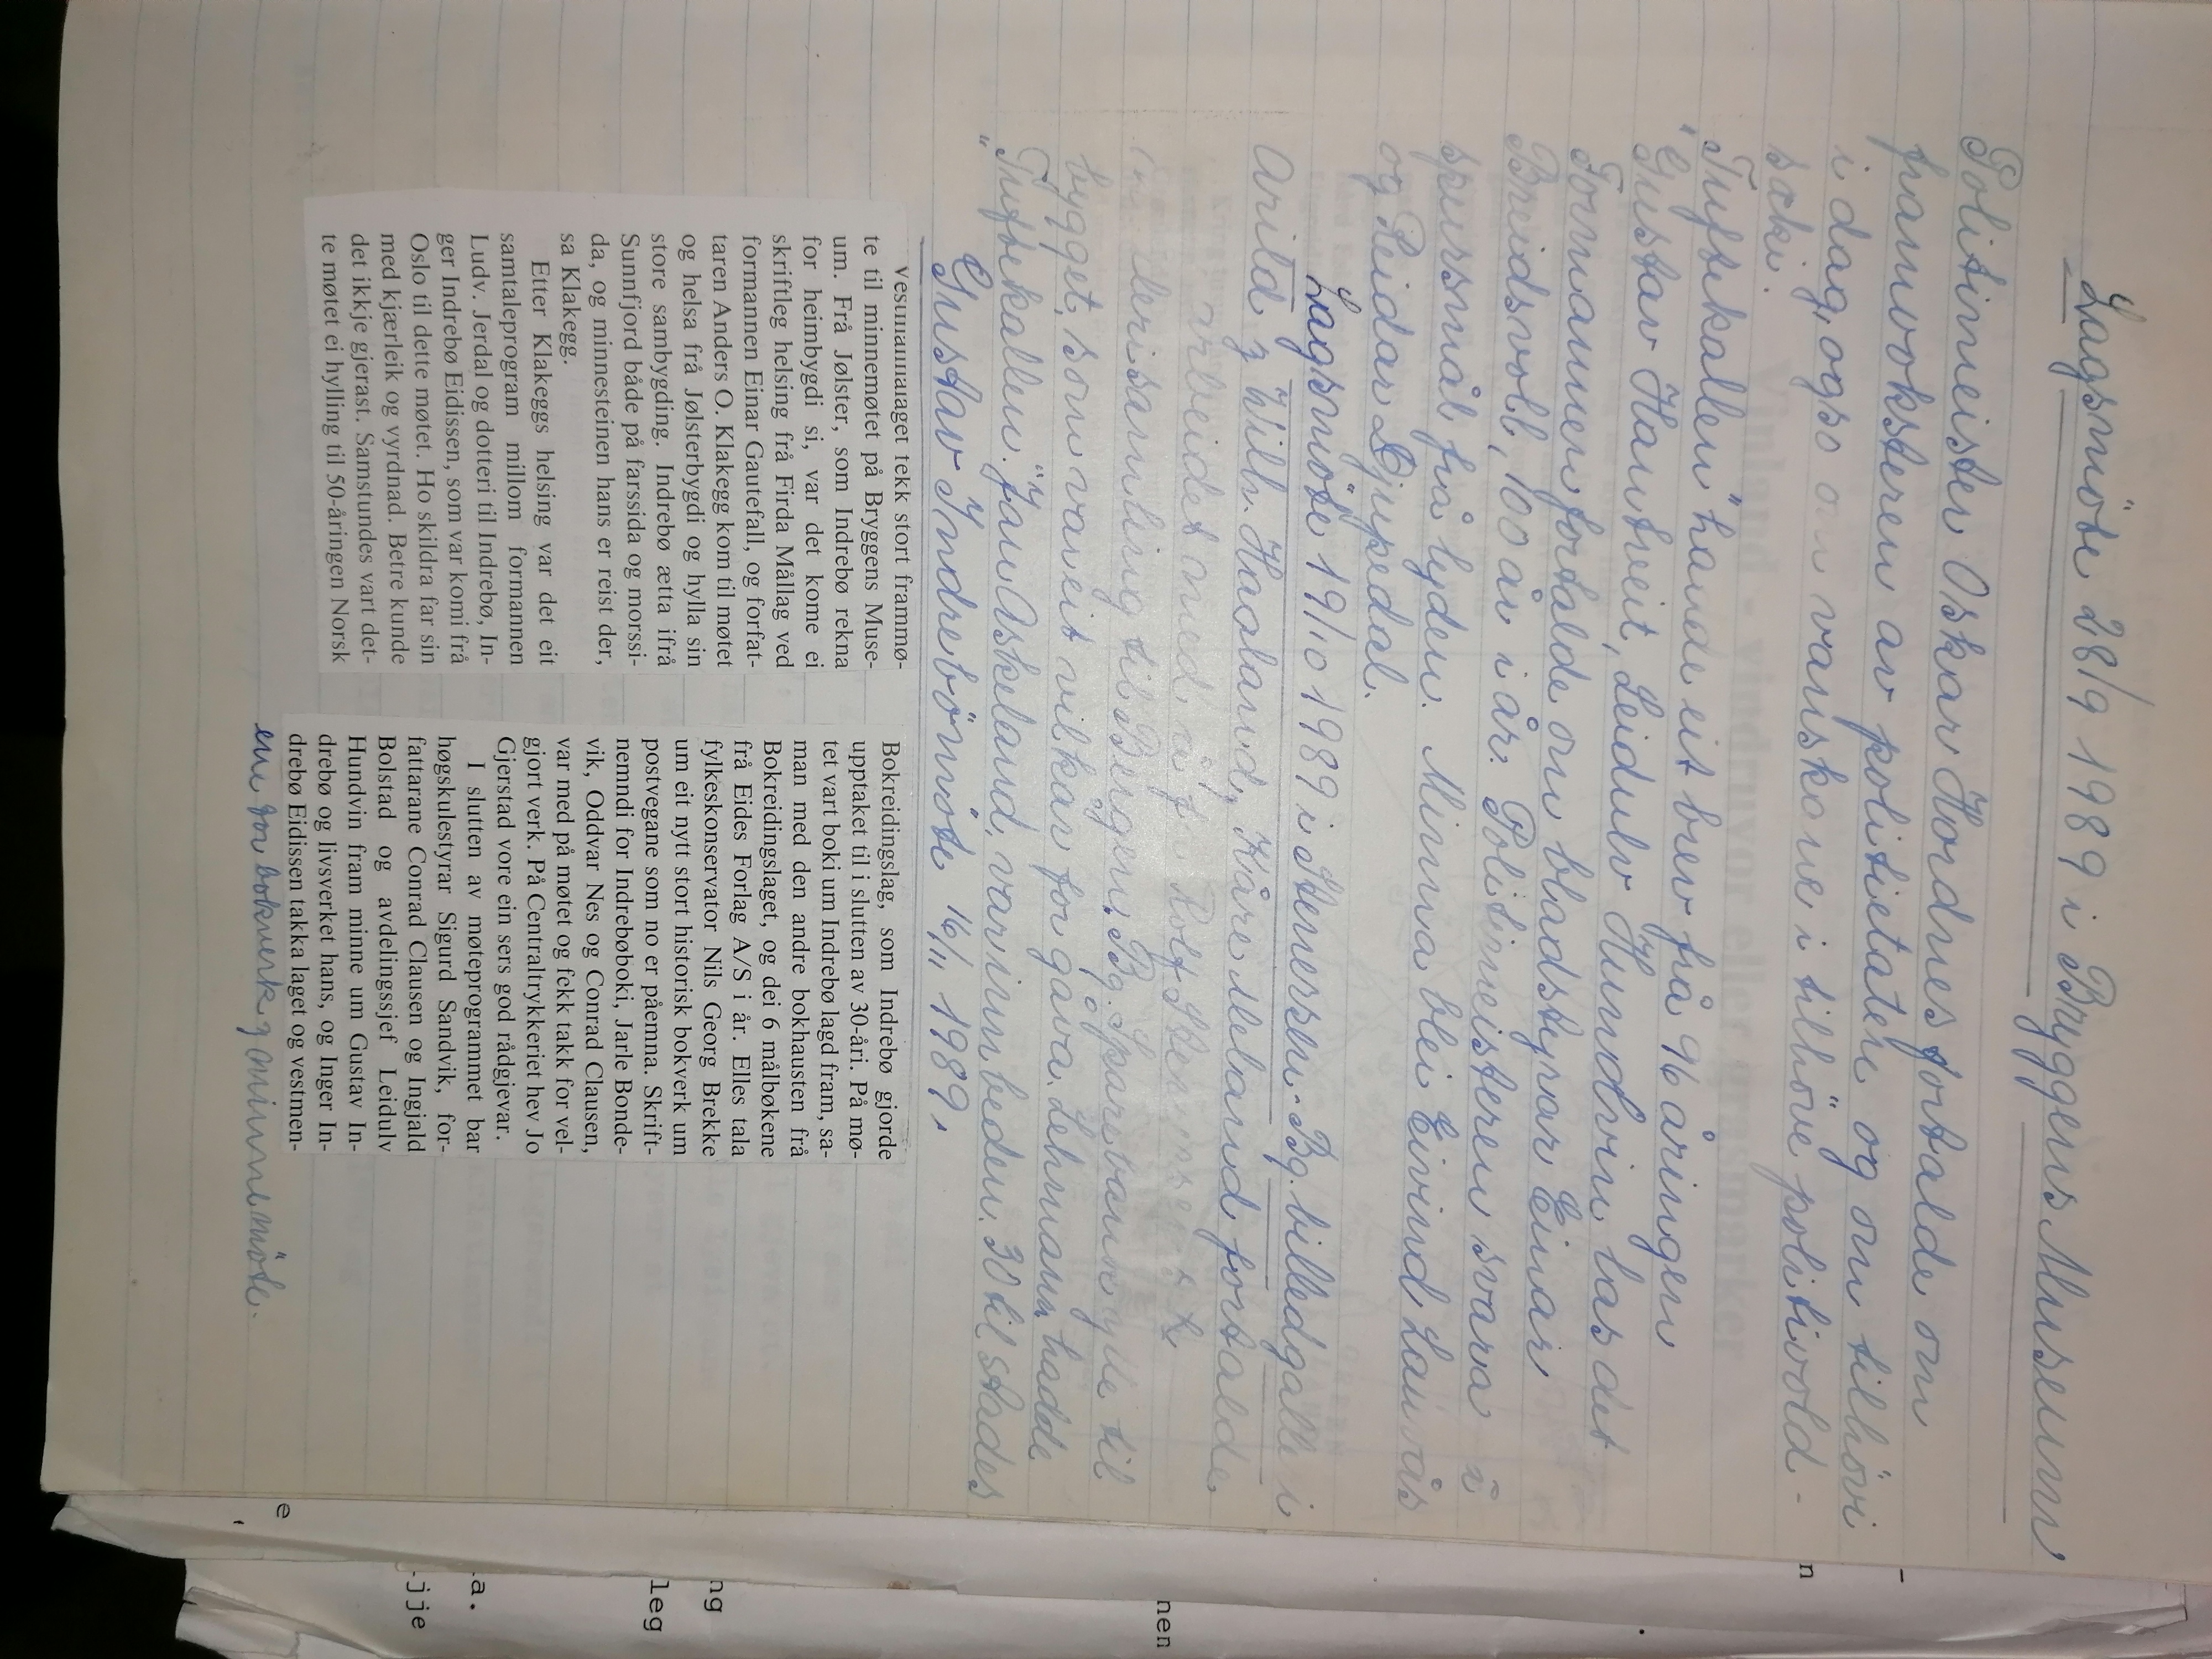 Lagsmöte 28/9 1989 i Bryggens Museum
Politimeister Oskar Hordnes fortalde om
framvoksteren av politietaten og om tilhövi
i dag, ogso om vanskone i tilhöve politivold-
saki.
"Tufsekallen" hande eit brev frå 96 åringen
Gustav Hantveit, Leidulv Hundvin las det
Formannen fordalde om bladstyrar Einar
Breidsvoll, 100 år i år. Politimeisteren svara i
spursmål frå lyden. Minna blei Eivind Lanås
og Reidar Djupedal.
Lagsmöte 19/10 1989 i Stenersen-Bg. billedgalleri i
Arild & Wilh. Haaland, Kåre Meland fortalde
om arbeidet med å få Rolf Steneresen
si samling til Bergen. Bg. Sparebank gjde til
bygget, som var eit vilkår for gåva. Lehmann hadde
"Tufsekallen". Jan Askeland var innbeden. 30 til stades
Gustav Indrebömöte 16/11 1989,
Vestmannalaget fekk stort frammø-
te til minnemøtet på Bryggens Muse-
um. Frå Jølster, som Indrebø rekna
for heimbygdi si, var det kome ei
skriftleg helsing frå Firda Mållag ved
formannen Einar Gautefall, og forfat-
taren Anders O. Klakegg kom til møtet
og helsa frå Jølsterbygdi og hylla sin
store sambygding. Indrebø ætta ifrå
Sunnfjord både på farssida og morssi-
da, og minnesteinen hans er reist der,
sa Klakegg.
Etter Klakeggs helsing var det eit
samtaleprogram millom formannen
Ludv. Jerdal og dotteri til Indrebø, In-
ger Indrebø Eidissen, som var komi frå
Oslo til dette møtet. Ho skildra far sin
med kjærleik og vyrdnad. Betre kunde
det ikkje gjerast. Samstundes vart det-
te møtet ei hylling til 50-åringen Norsk
Bokreidingslag, som Indrebø gjorde
upptaket til i slutten av 30-åri. På mø-
tet vart boki um Indrebø lagd fram, sa-
man med den andre bokhausten frå
Bokreidingslaget, og dei 6 målbøkene
frå Eides Forlag A/S i år. Elles tala
fylkeskonservator Nils Georg Brekke
um eit nytt stort historisk bokverk um
postvegane som no er påemna. Skrift-
nemndi for Indrebøboki, Jarle Bonde-
vik, Oddvar Nes og Conrad Clausen,
var med på møtet og fekk takk for vel-
gjort verk. På Centraltrykkeriet hev Jo
Gjerstad vore ein sers god rådgjevar.
I slutten av møteprogrammet bar
høgskulestyrar Sigurd Sandvik, for-
fattarane Conrad Clausen og Ingjald
Bolstad og avdelingssjef Leidulv
Hundvin fram minne um Gustav In-
drebø og livsverket hans, og Inger In-
drebø Eidissen takka laget og vestmen-
ene for bokverk & minnemöte.